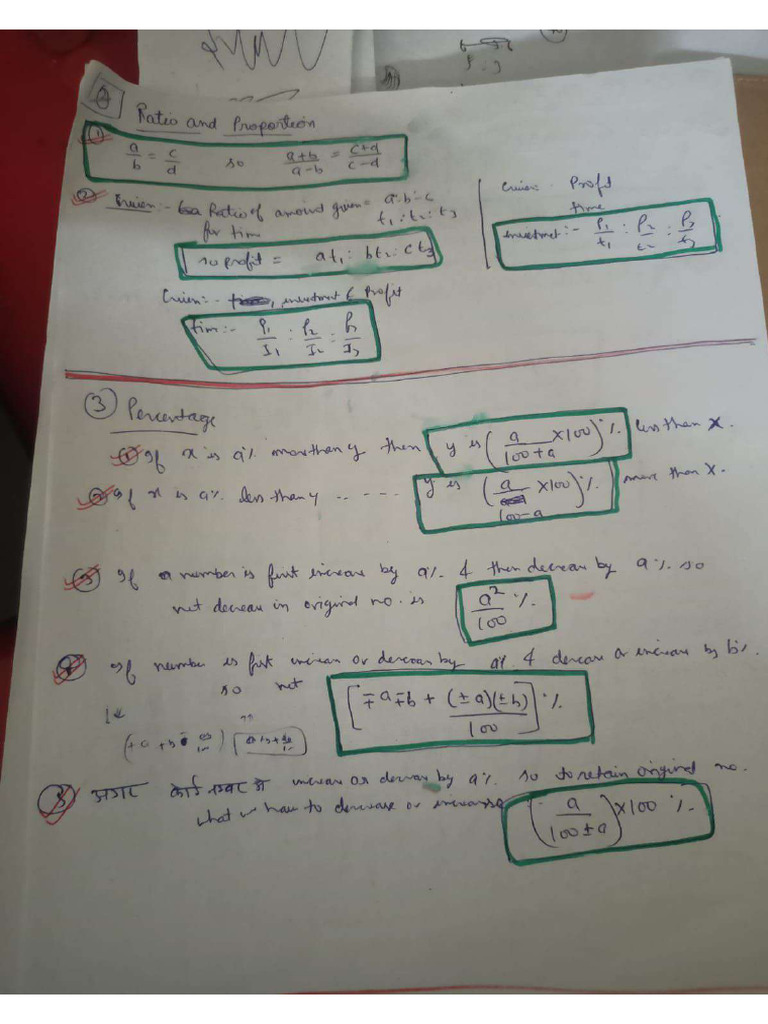 ② Ratio and Proportion
① a/b = c/d so (a+b)/(a-b) = (c+d)/(c-d)
② Given:- Ratio of amount given = a:b:c
for tim t₁:t₂:t₃
so profit = at₁ : bt₂ : ct₃
Given:- Profit
time
investmet:- P₁/t₁ : P₂/t₂ : P₃/t₃
Given:- , investment & Profit
tim:- P₁/I₁ : P₂/I₂ : P₃/I₃
③ Percentage
① If x is a% more than y then y is (a/(100+a) ×100)% less than x.
② If x is a% less than y ------ y is (a/(100-a) ×100)% more than x.
③ If a number is first increase by a% & then decrease by a% so
net decrease in original no. is a²/100 %.
④ If number is first increase or decrease by a% & decrease or increase by b%.
so net [∓a∓b + (±a)(±b)/100] %
⑤ अगर कोई नम्बर में increase or decrease by a% so to retain original no.
what we have to decrease or increase (a/(100±a))×100 %